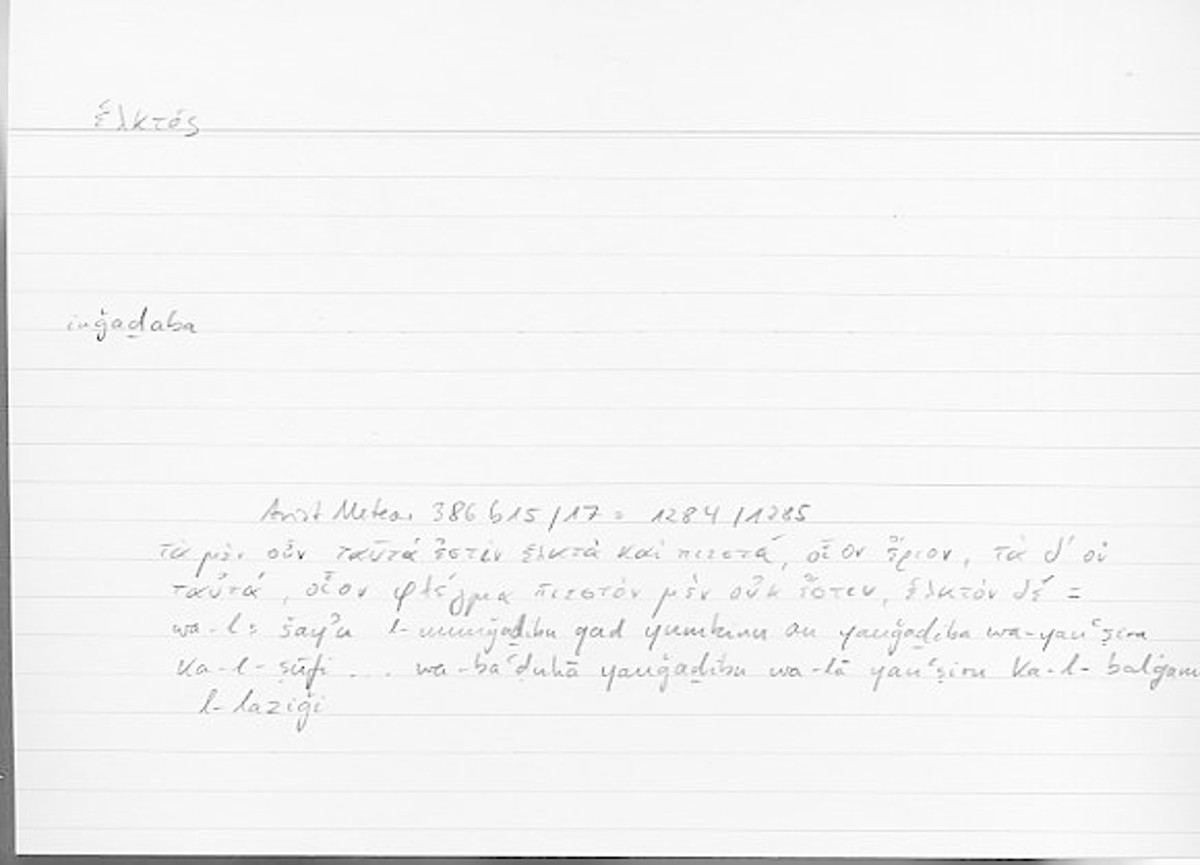 ἑλκτός
inǧaḏaba
Arist Meteor 386 b15/17 = 1284/1285
τὰ μὲν οὖν ταὐτά ἐστιν ἑλκτὰ καὶ πιεστά, οἷον ἔριον, τὰ δ' οὐ
ταὐτά, οἷον φλέγμα πιεστὸν μὲν οὐκ ἔστιν, ἑλκτὸν δέ =
wa-l- šayʾu l-munǧaḏibu qad yumkinu an yanǧaḏiba wa-yanʿaṣira
ka-l-ṣūfi ... wa-baʿḍuhā yanǧaḏibu wa-lā yanʿaṣiru ka-l-balġam
l-laziǧi